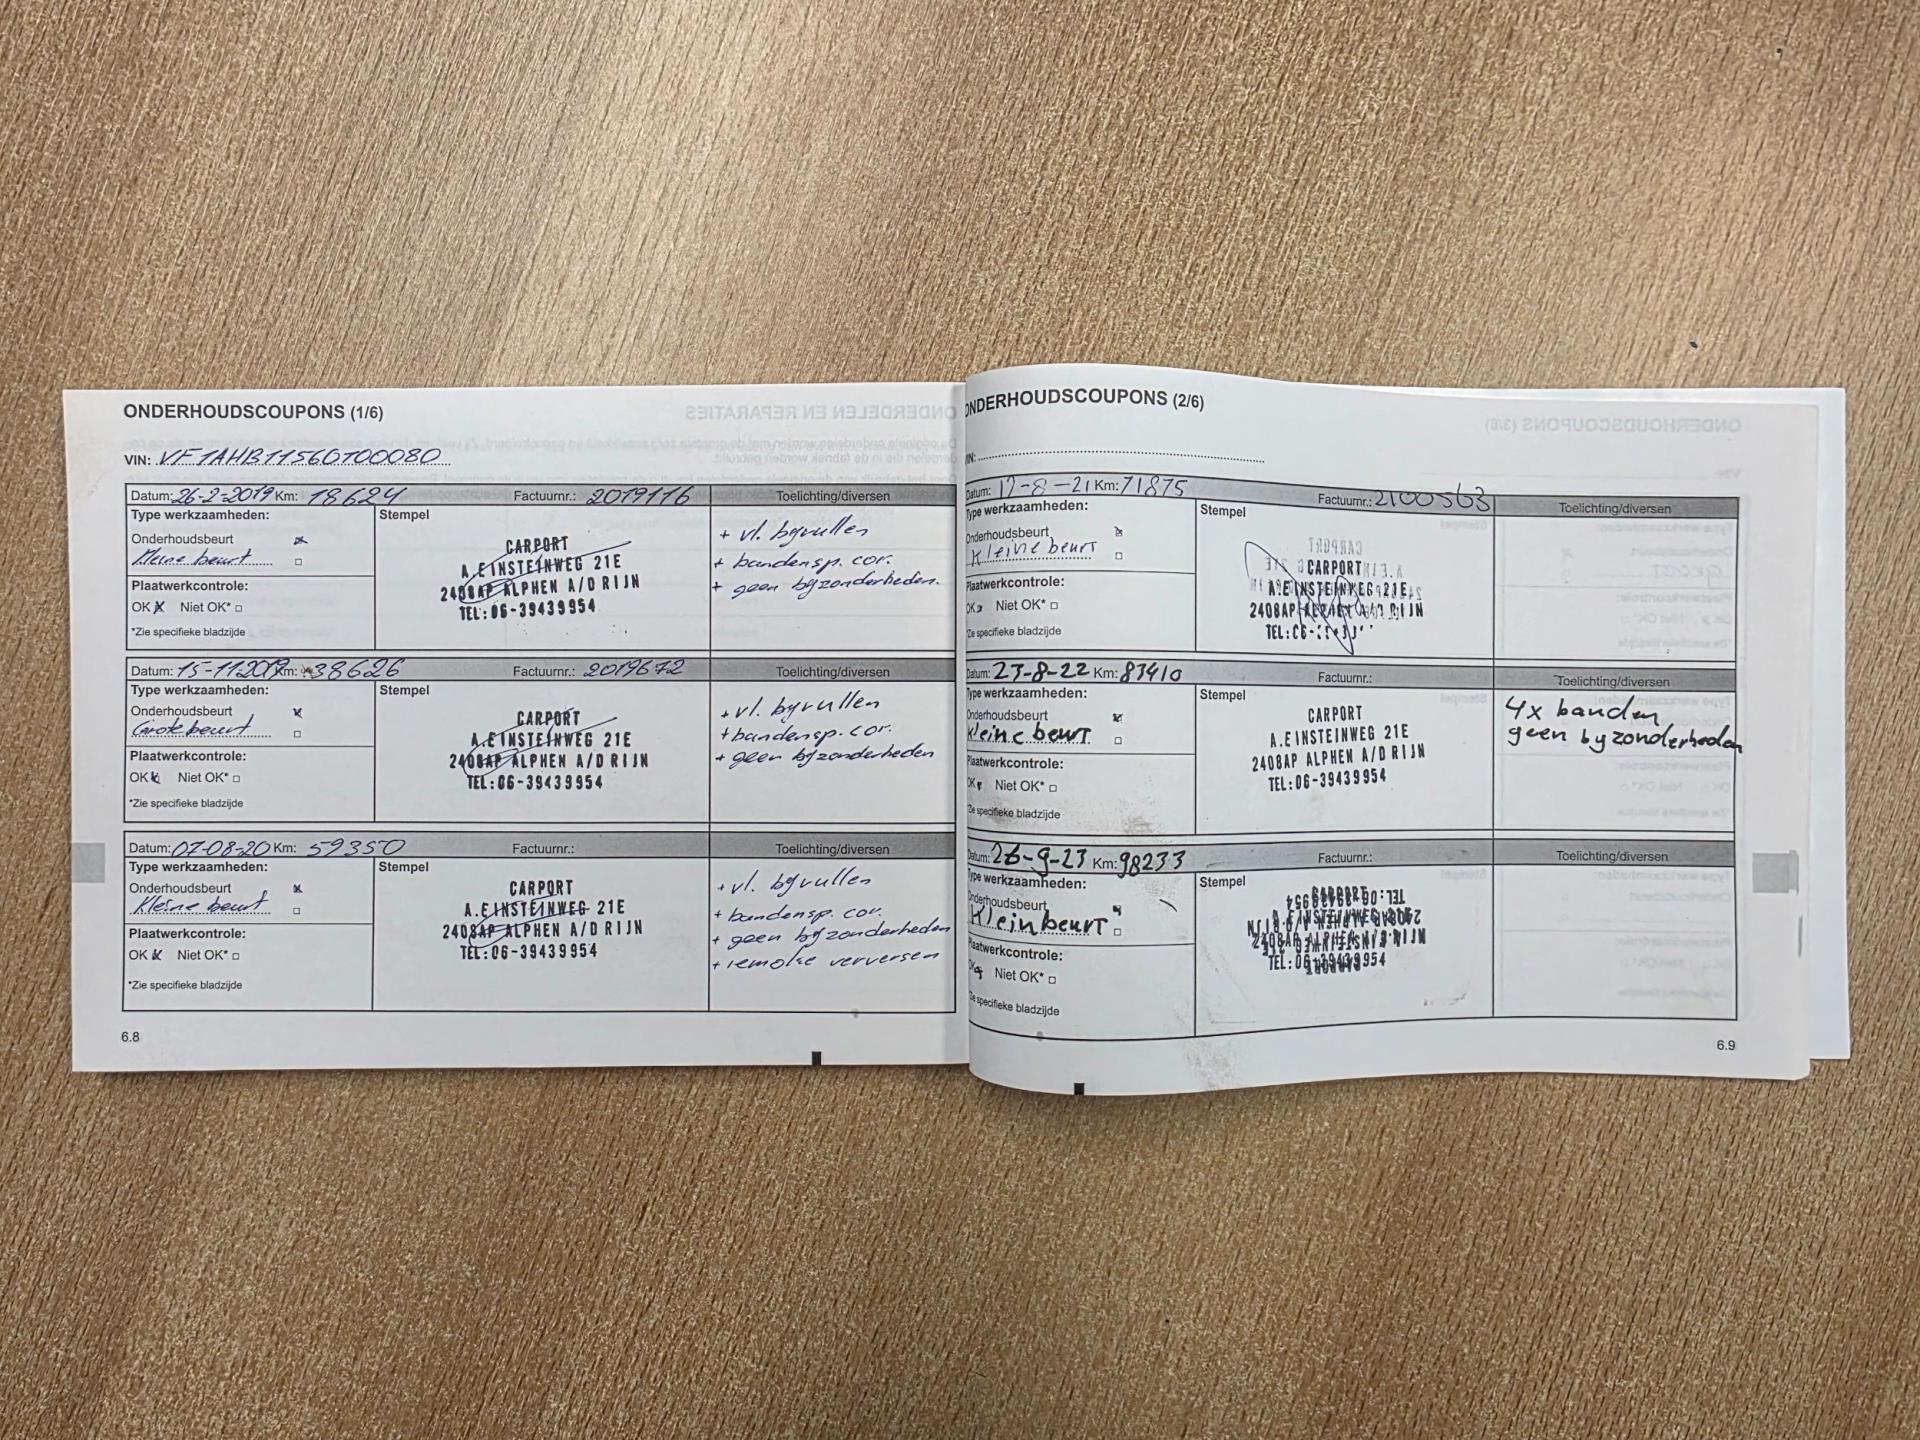 ONDERHOUDSCOUPONS (1/6)
VIN: VF1AHB11560T00080
Datum: 26-2-2019 Km: 18624 Factuurnr.: 2019116 Toelichting/diversen
Type werkzaamheden:
Stempel
Onderhoudsbeurt
Kleine beurt
Plaatwerkcontrole:
OK Niet OK*
*Zie specifieke bladzijde
CARPORT
A.EINSTEINWEG 21E
2408AP ALPHEN A/D RIJN
TEL:06-39439954
+ vl. bijvullen
+ bandensp. cor.
+ geen bijzonderheden.
Datum: 15-11-2019 Km: 38626 Factuurnr.: 2019672 Toelichting/diversen
Type werkzaamheden:
Stempel
Onderhoudsbeurt
Grote beurt
Plaatwerkcontrole:
OK Niet OK*
*Zie specifieke bladzijde
CARPORT
A.EINSTEINWEG 21E
2408AP ALPHEN A/D RIJN
TEL:06-39439954
+ vl. bijvullen
+ bandensp. cor.
+ geen bijzonderheden
Datum: 07-08-20 Km: 59350 Factuurnr.: Toelichting/diversen
Type werkzaamheden:
Stempel
Onderhoudsbeurt
Kleine beurt
Plaatwerkcontrole:
OK Niet OK*
*Zie specifieke bladzijde
CARPORT
A.EINSTEINWEG 21E
2408AP ALPHEN A/D RIJN
TEL:06-39439954
+ vl. bijvullen
+ bandensp. cor.
+ geen bijzonderheden
+ remolie verversen
6.8
ONDERHOUDSCOUPONS (2/6)
Datum: 17-8-21 Km: 71875 Factuurnr.: 2100563 Toelichting/diversen
Type werkzaamheden:
Stempel
Onderhoudsbeurt
Kleine beurt
Plaatwerkcontrole:
OK Niet OK*
*Zie specifieke bladzijde
CARPORT
A.EINSTEINWEG 21E
2408AP ALPHEN A/D RIJN
Datum: 23-8-22 Km: 83410 Factuurnr.: Toelichting/diversen
Type werkzaamheden:
Stempel
Onderhoudsbeurt
Kleine beurt
Plaatwerkcontrole:
OK Niet OK*
*Zie specifieke bladzijde
CARPORT
A.EINSTEINWEG 21E
2408AP ALPHEN A/D RIJN
TEL:06-39439954
4x banden
geen bijzonderheden
Datum: 26-9-23 Km: 98233 Factuurnr.: Toelichting/diversen
Type werkzaamheden:
Stempel
Onderhoudsbeurt
Klein beurt
Plaatwerkcontrole:
OK Niet OK*
*Zie specifieke bladzijde
CARPORT
A.EINSTEINWEG 21E
2408AP ALPHEN A/D RIJN
TEL:06-39439954
6.9